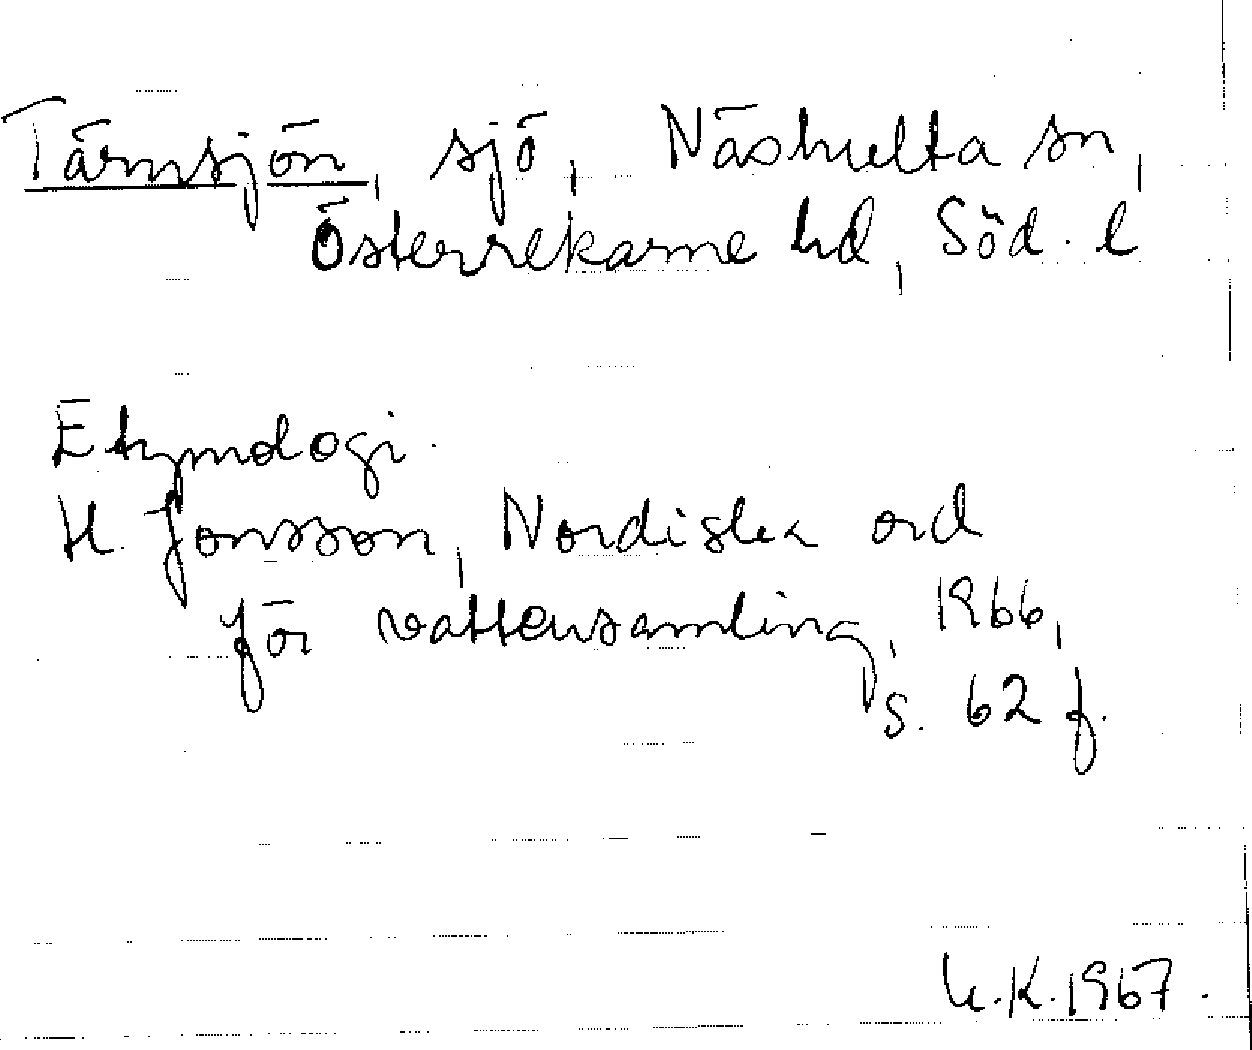 Tärnsjön, sjö, Näshulta sn,
Österrekarne hd, Söd. l
Etymologi.
H. Jonsson, Nordiska ord
för vattensamling, 1966,
s. 62 f.
K. 1967.